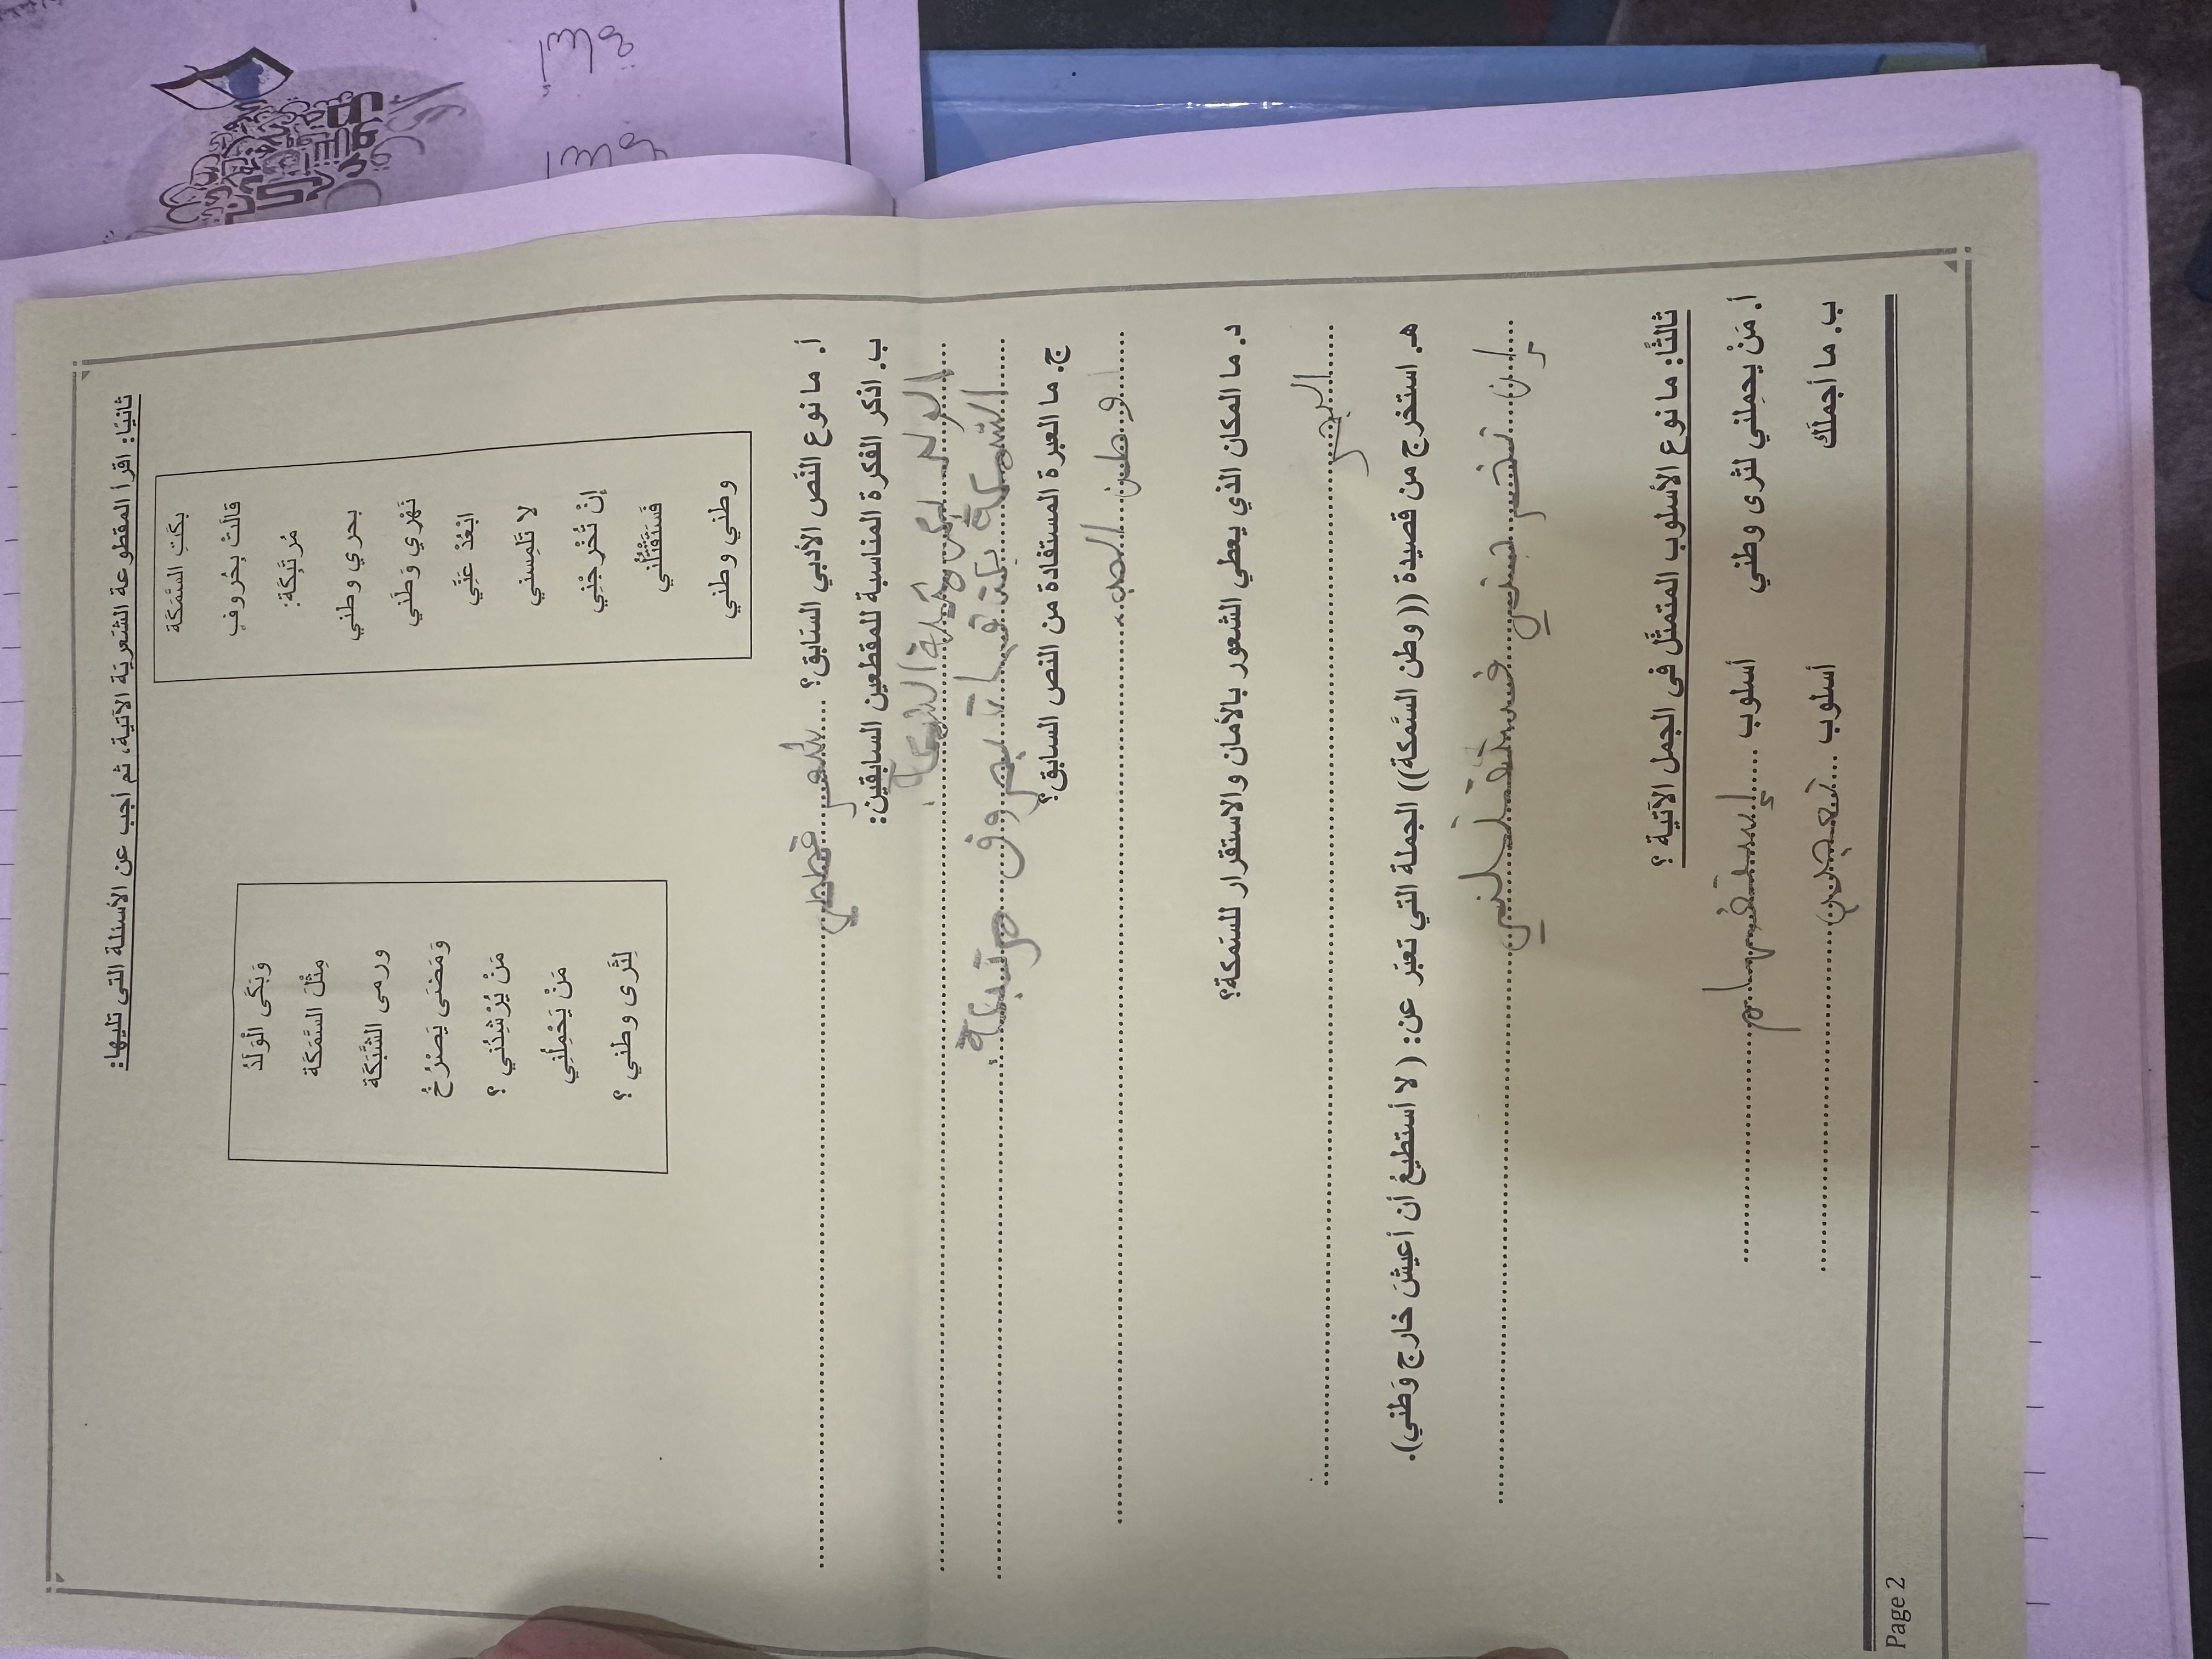 ثانيًا: اقرأ المقطوعة الشعرية الآتية، ثم أجب عن الأسئلة التي تليها:
بكَتِ السَّمَكَة
قالَتْ بِحُروفٍ
مُرتَبِكَة:
بحري وطني
نَهْري وَطَني
ابْعُدْ عَنِّي
لا تَلْمِسني
إنْ تُخْرِجْنِي
فَسَتَقْتُلُني
وطني وطني
وَبَكَى الْوَلَدُ
مِثْلَ السَّمَكَة
ورمى الشَّبَكَة
وَمَضَى يَصْرُخُ
مَنْ يُرْشِدُني ؟
مَنْ يَحْمِلُنِي
لِثَرى وطني ؟
أ. ما نوع النّص الأدبي السّابق؟ شعر قصصي
ب. اذكر الفكرة المناسبة للمقطعين السابقين:
الولد بكى
السمكة بحروف مرتبكة
ج. ما العبرة المستفادة من النص السابق؟
د. ما المكان الذي يعطي الشعور بالأمان والاستقرار للسّمكة؟
البحر
هـ. استخرج من قصيدة ((وطن السَّمكة)) الجملة التي تعبّر عن: ( لا أستطيعُ أن أعيشَ خارج وَطني).
إن تخرجني فستقتلني
ثالثًا: ما نوع الأسلوب المتمثّل في الجمل الآتية ؟
أ. مَنْ يحمِلني لثرى وطني أسلوب إستفهام
ب. ما أجملَك أسلوب تعجب
Page 2